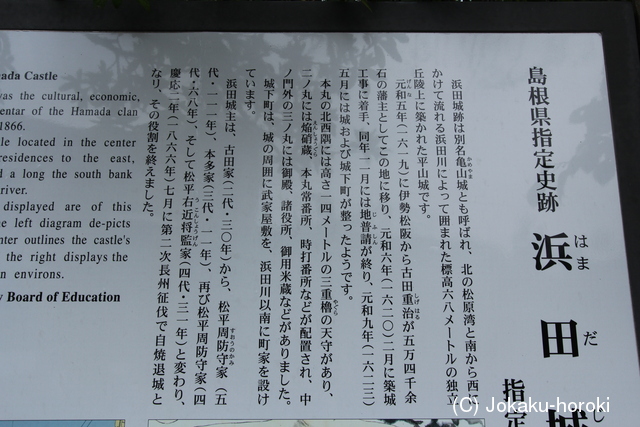 島根県指定史跡
浜田城
はまだじ
指定
浜田城跡は別名亀山城とも呼ばれ、北の松原湾と南から西に
かめやま
かけて流れる浜田川によって囲まれた標高六八メートルの独立
丘陵上に築かれた平山城です。
元和五年(一六一九)に伊勢松阪から古田重治が五万四千余
げんな
しげはる
石の藩主としてこの地に移り、元和六年(一六二〇)二月に築城
工事に着手、同年一二月には地普請が終り、元和九年(一六二三)
じふしん
五月には城および城下町が整ったようです。
本丸の北西隅には高さ一四メートルの三重櫓の天守があり、
やぐら
二ノ丸には焔硝蔵、本丸常番所、時打番所などが配置され、中
えんしょうぐら
ノ門外の三ノ丸には御殿、諸役所、御用米蔵などがありました。
城下町は、城の周囲に武家屋敷を、浜田川以南に町家を設け
ています。
浜田城主は、古田家(二代・三〇年)から、松平周防守家(五
すおうのかみ
代・一一一年)、本多家(三代・一一年)、再び松平周防守家(四
代・六八年)、そして松平右近将監家(四代・三一年)と変わり、
うこんしょうげん
慶応二年(一八六六年)七月に第二次長州征伐で自焼退城と
なり、その役割を終えました。
ada Castle
was the cultural, economic,
entar of the Hamada clan
1866.
tle located in the center
residences to the east,
d a long the south bank
river.
displayed are of this
e left diagram de-picts
nter outlines the castle's
the right displays the
n environs.
y Board of Education
(C) Jokaku-horoki